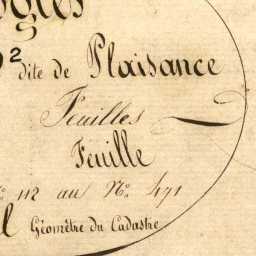 2 dite de Plaisance
Feuilles
Feuille
112 au No. 471
Géomètre du Cadastre